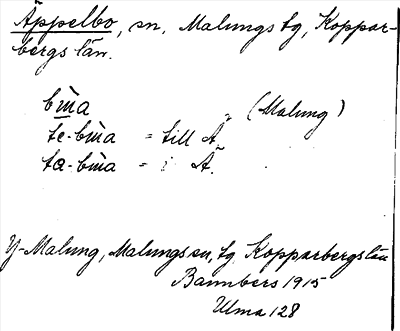 Äppelbo, sn, Malungs tg, Koppar-
bergs län.
bm̀a „ (Malung)
te-bm̀a = till Ä.
ta-bm̀a = i Ä.
Y-Malung, Malungs sn, tg. Kopparbergs län
Bannbers 1915
Ulma 128